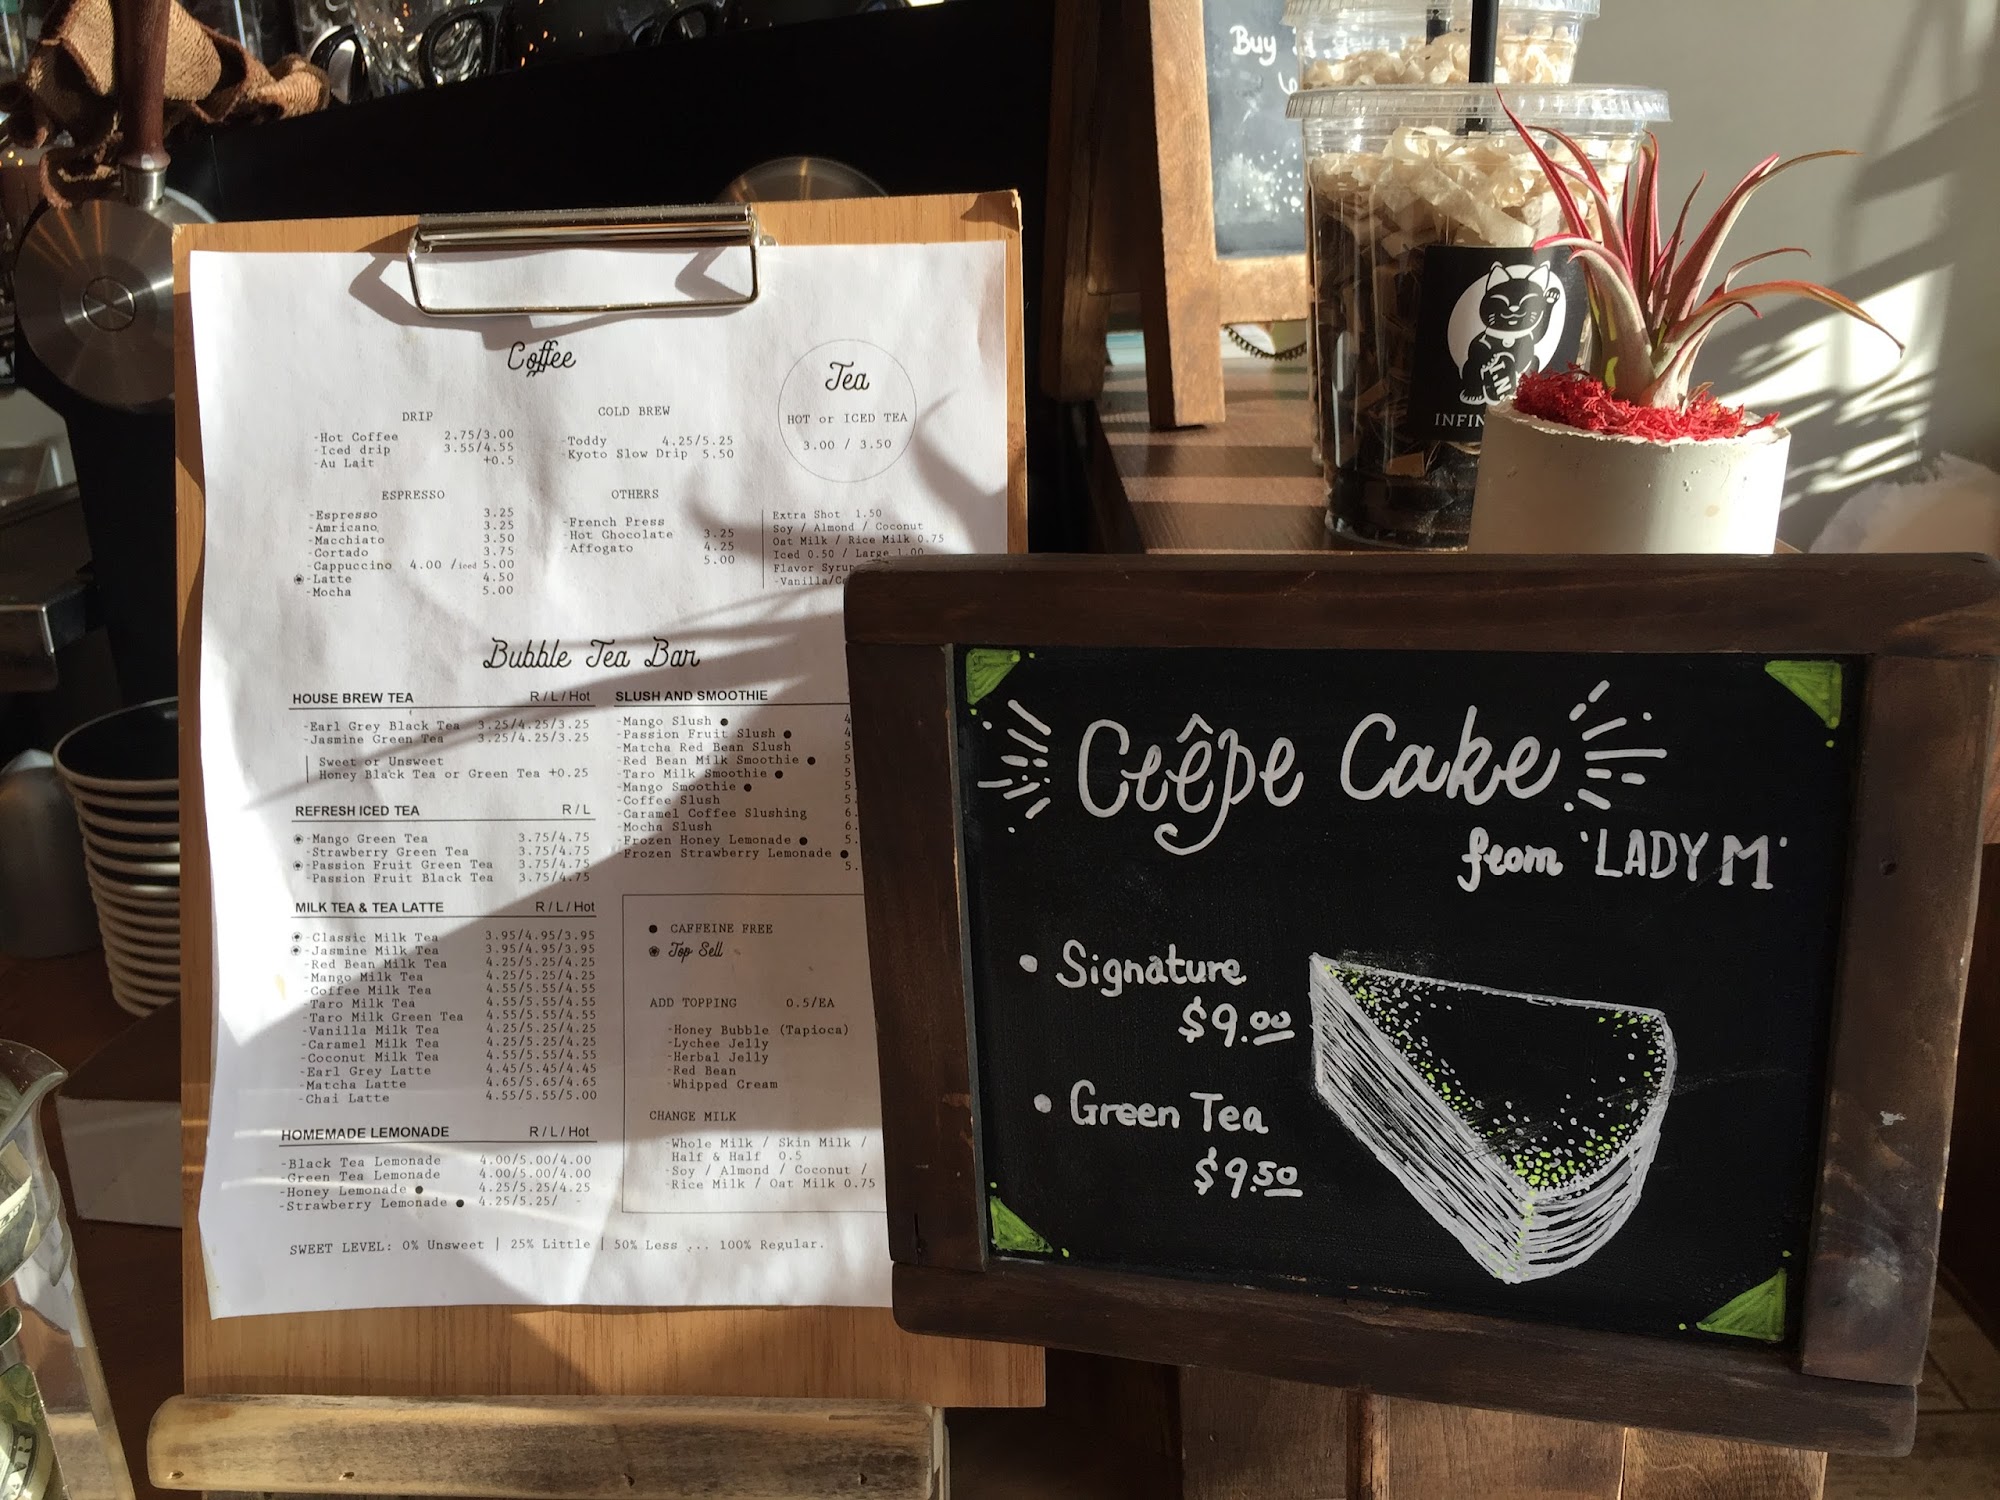 Buy
INFIN
Coffee
DRIP
-Hot Coffee 2.75/3.00
-Iced drip 3.55/4.55
-Au Lait +0.5
COLD BREW
-Toddy 4.25/5.25
-Kyoto Slow Drip 5.50
Tea
HOT or ICED TEA
3.00 / 3.50
ESPRESSO
-Espresso 3.25
-Amricano 3.25
-Macchiato 3.50
-Cortado 3.75
-Cappuccino 4.00 /iced 5.00
-Latte 4.50
-Mocha 5.00
OTHERS
-French Press 3.25
-Hot Chocolate 4.25
-Affogato 5.00
Extra Shot 1.50
Soy / Almond / Coconut
Oat Milk / Rice Milk 0.75
Iced 0.50 / Large 1.00
Flavor Syrup
-Vanilla/
Bubble Tea Bar
HOUSE BREW TEA R / L / Hot
-Earl Grey Black Tea 3.25/4.25/3.25
-Jasmine Green Tea 3.25/4.25/3.25
Sweet or Unsweet
Honey Black Tea or Green Tea +0.25
REFRESH ICED TEA R / L
-Mango Green Tea 3.75/4.75
-Strawberry Green Tea 3.75/4.75
-Passion Fruit Green Tea 3.75/4.75
-Passion Fruit Black Tea 3.75/4.75
MILK TEA & TEA LATTE R / L / Hot
-Classic Milk Tea 3.95/4.95/3.95
-Jasmine Milk Tea 3.95/4.95/3.95
-Red Bean Milk Tea 4.25/5.25/4.25
-Mango Milk Tea 4.25/5.25/4.25
-Coffee Milk Tea 4.55/5.55/4.55
-Taro Milk Tea 4.55/5.55/4.55
-Taro Milk Green Tea 4.55/5.55/4.55
-Vanilla Milk Tea 4.25/5.25/4.25
-Caramel Milk Tea 4.25/5.25/4.25
-Coconut Milk Tea 4.55/5.55/4.55
-Earl Grey Latte 4.45/5.45/4.45
-Matcha Latte 4.65/5.65/4.65
-Chai Latte 4.55/5.55/5.00
HOMEMADE LEMONADE R / L / Hot
-Black Tea Lemonade 4.00/5.00/4.00
-Green Tea Lemonade 4.00/5.00/4.00
-Honey Lemonade ● 4.25/5.25/4.25
-Strawberry Lemonade ● 4.25/5.25/ -
SLUSH AND SMOOTHIE
-Mango Slush ● 4
-Passion Fruit Slush ● 4
-Matcha Red Bean Slush 5
-Red Bean Milk Smoothie ● 5
-Taro Milk Smoothie ● 5
-Mango Smoothie ● 5.
-Coffee Slush 5.
-Caramel Coffee Slushing 6.
-Mocha Slush 6.
-Frozen Honey Lemonade ● 5.
-Frozen Strawberry Lemonade ●
5.
● CAFFEINE FREE
Top Sell
ADD TOPPING 0.5/EA
-Honey Bubble (Tapioca)
-Lychee Jelly
-Herbal Jelly
-Red Bean
-Whipped Cream
CHANGE MILK
-Whole Milk / Skin Milk /
Half & Half 0.5
-Soy / Almond / Coconut /
-Rice Milk / Oat Milk 0.75
SWEET LEVEL: 0% Unsweet | 25% Little | 50% Less ... 100% Regular.
Crêpe Cake
from 'LADY M'
• Signature
$9.00
• Green Tea
$9.50